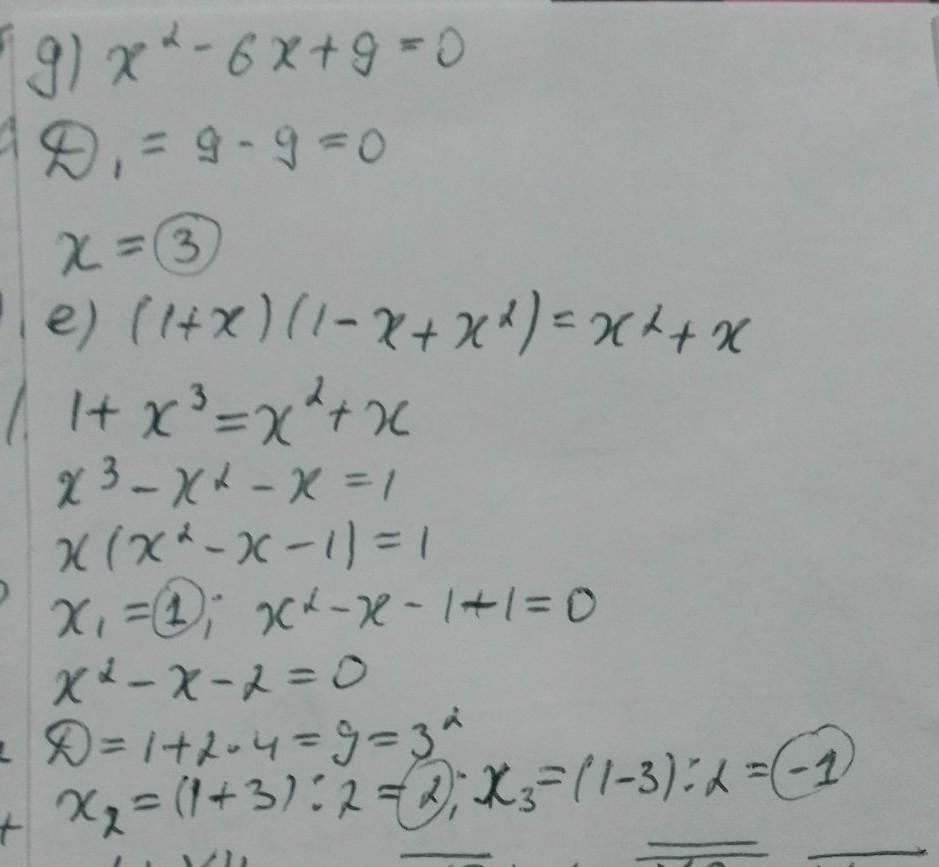 g) x² - 6x + 9 = 0
D₁ = 9 - 9 = 0
x = 3
e) (1+x)(1-x+x²) = x² + x
1 + x³ = x² + x
x³ - x² - x = 1
x(x² - x - 1) = 1
x₁ = 1; x² - x - 1 + 1 = 0
x² - x - 2 = 0
D = 1 + 2·4 = 9 = 3²
x₂ = (1+3):2 = 2; x₃ = (1-3):2 = -1